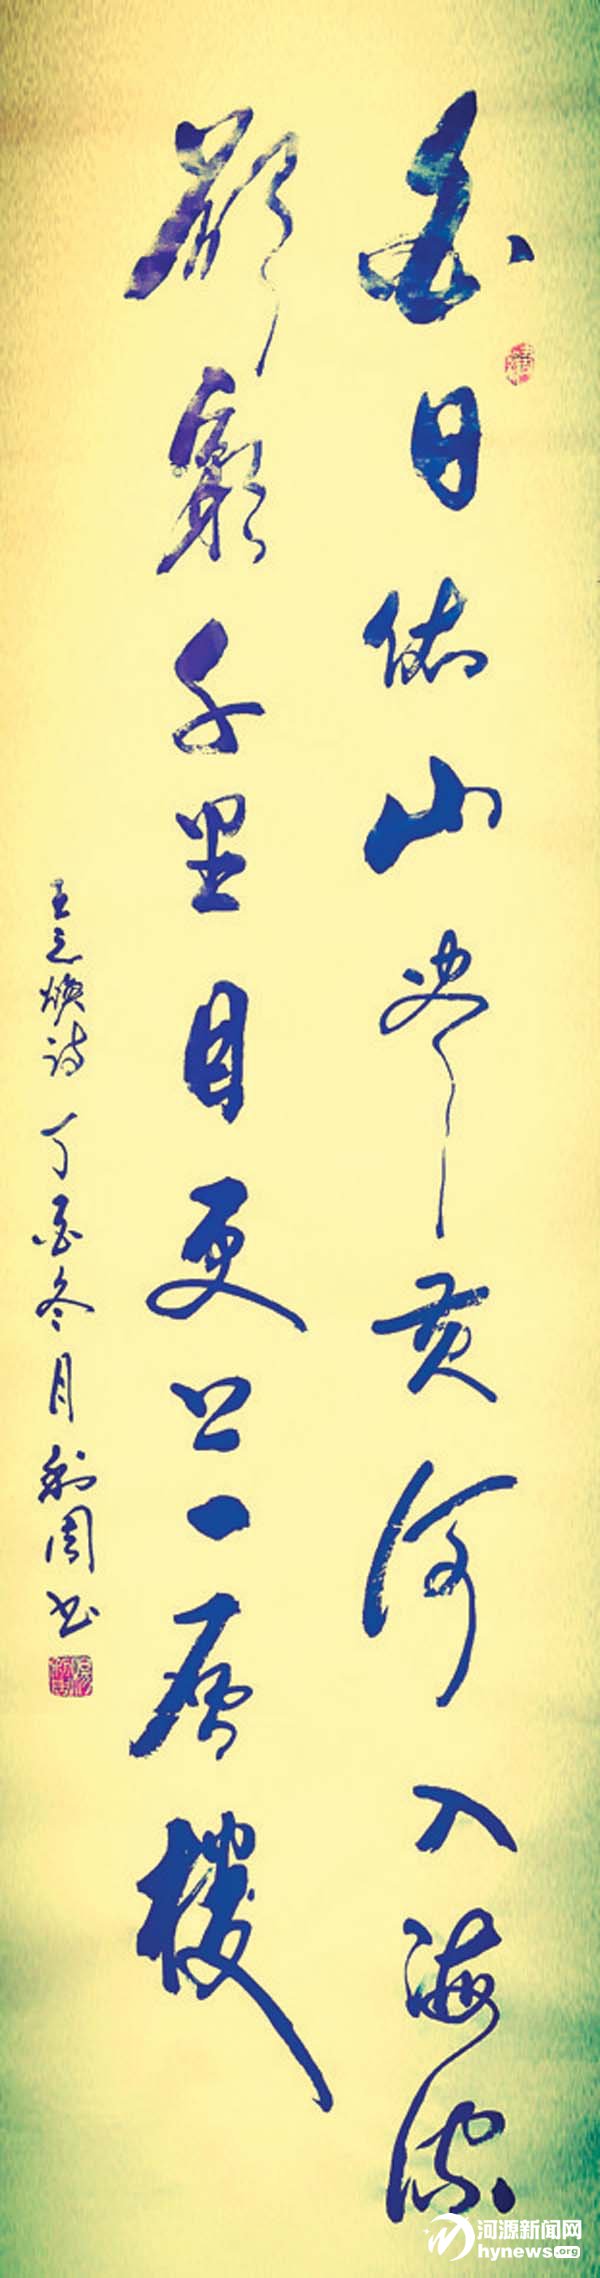 白日依山尽黄河入海流
欲穷千里目更上一层楼
王之焕诗 丁酉冬月 利周书
河源新闻网
hynews.org